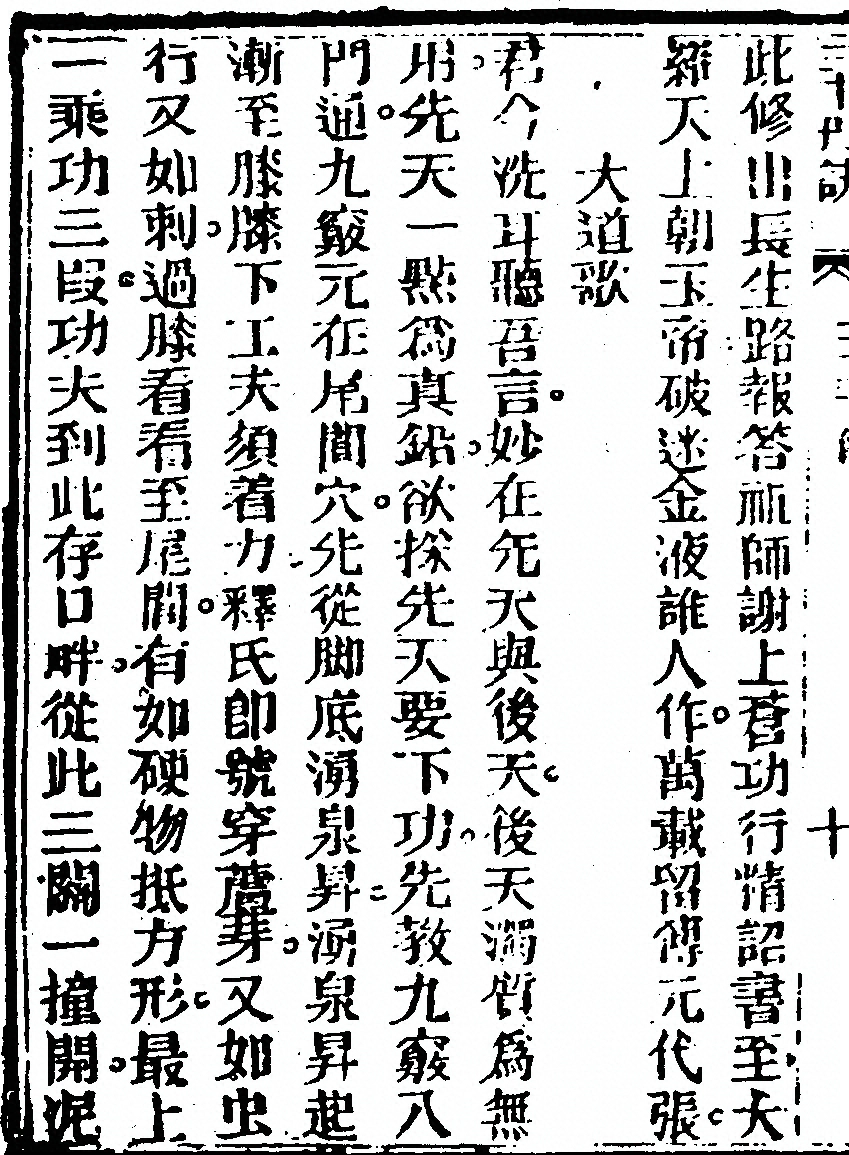 此修出長生路報答祗師謝上蒼功行精詔書至大
羅天上朝玉帝破迷金液誰人作萬載留傳元代張
大道歌
君今洗耳聽吾言妙在先天與後天後天濁質爲無
用先天一點爲真鉛欲採先天要下功先教九竅八
門通九竅元在尾閭穴先從脚底湧泉昇湧泉昇起
漸至膝膝下工夫須着力釋氏即號穿蘆芽又如虫
行又如刺過膝看看至尾閭有如硬物抵方形最上
一乘功三段功夫到此存口畔從此三關一撞開泥